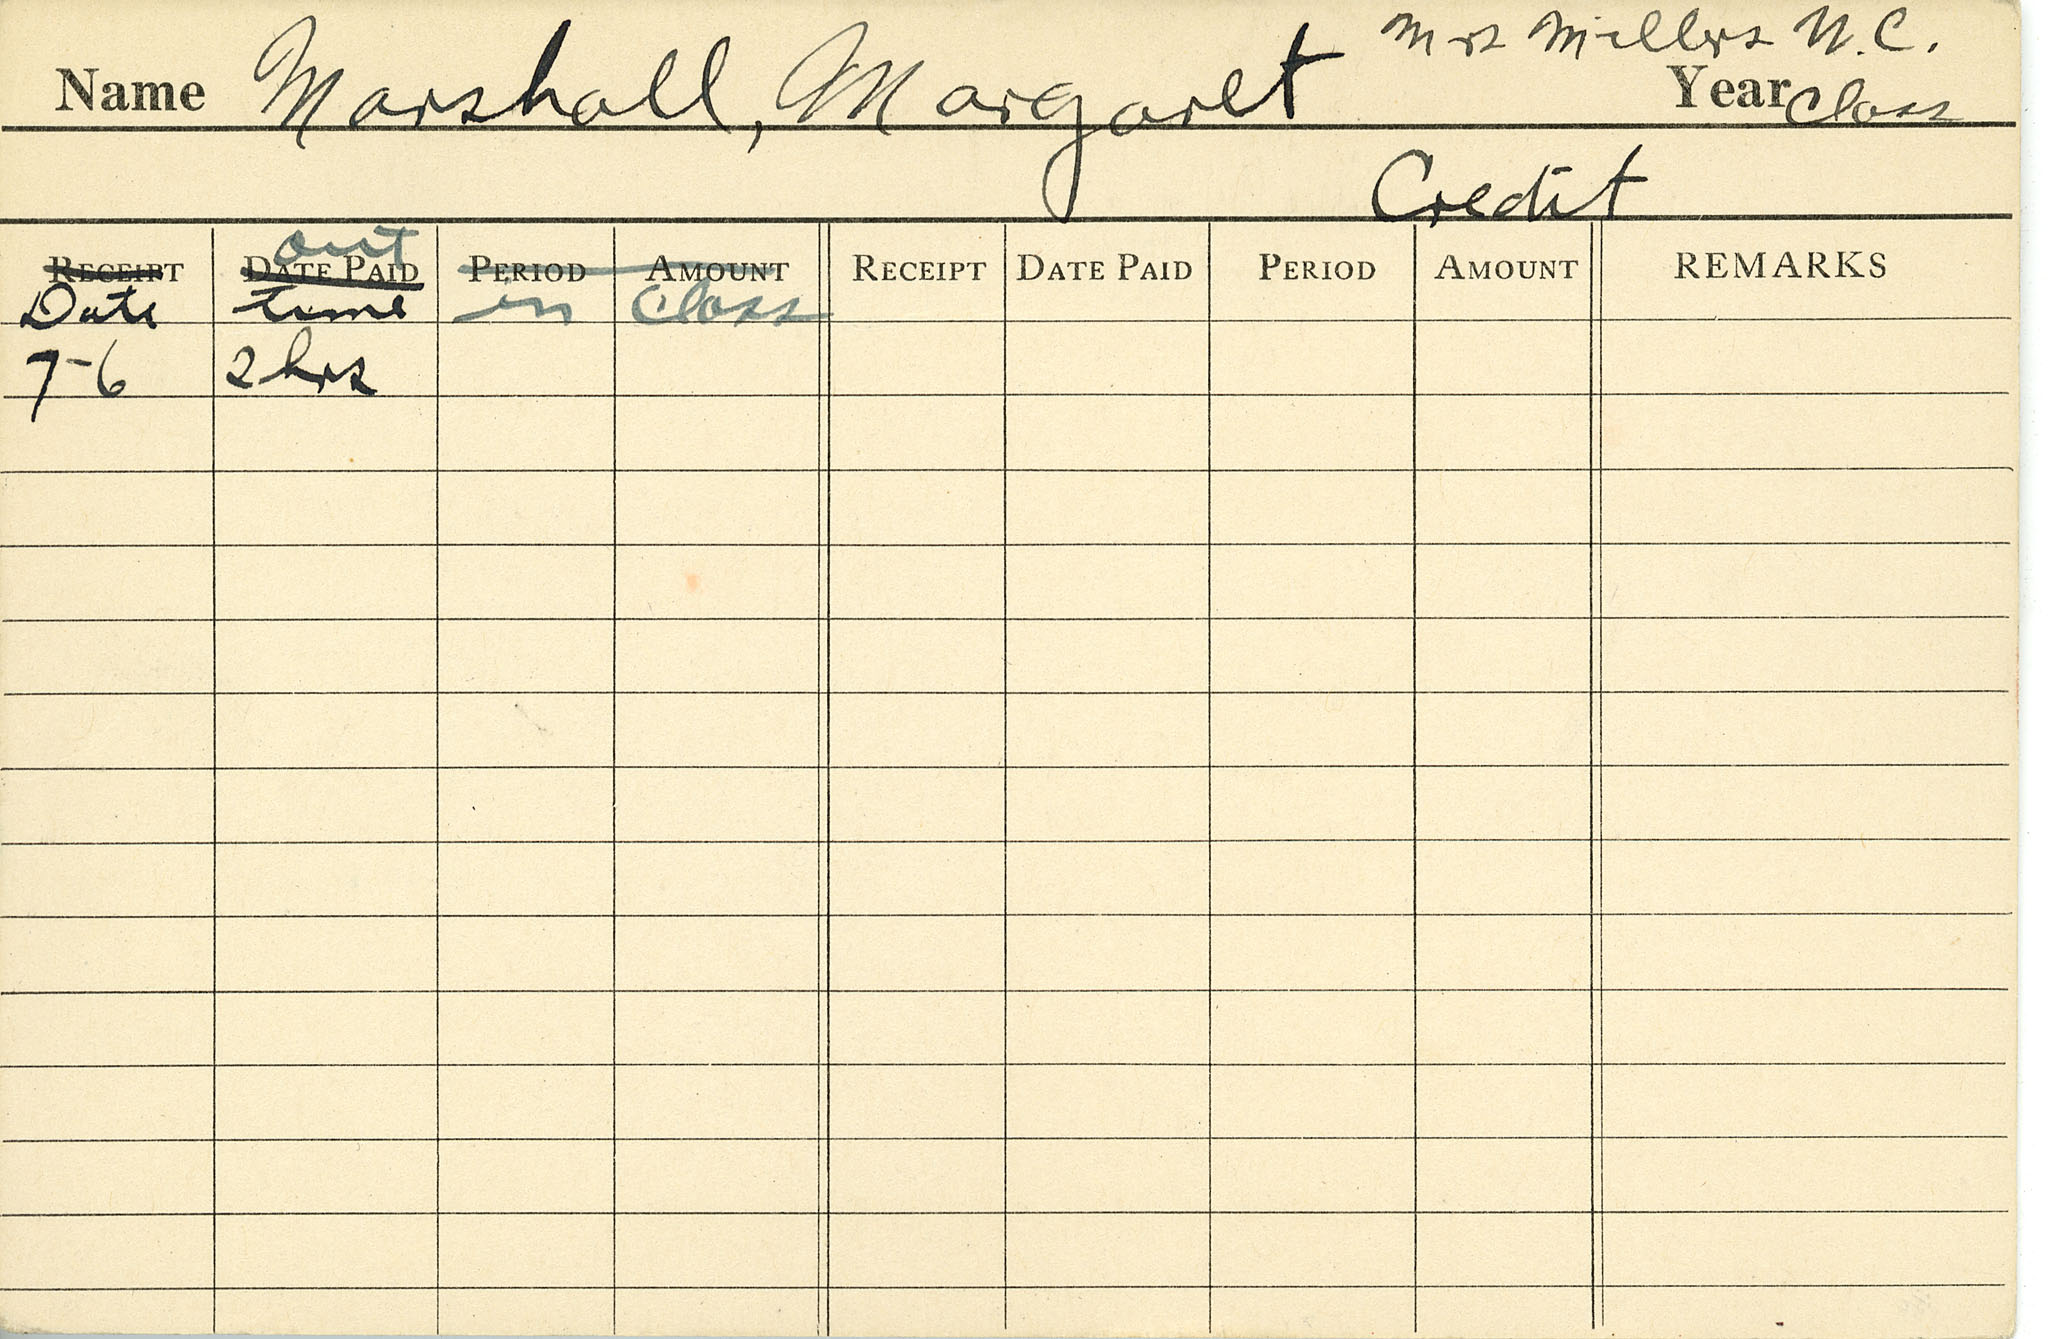 Mrs Millers N.C.
Name Marshall, Margaret Year Class
Credit
out
RECEIPT DATE PAID PERIOD AMOUNT RECEIPT DATE PAID PERIOD AMOUNT REMARKS
Date time in class
7-6 2 hrs